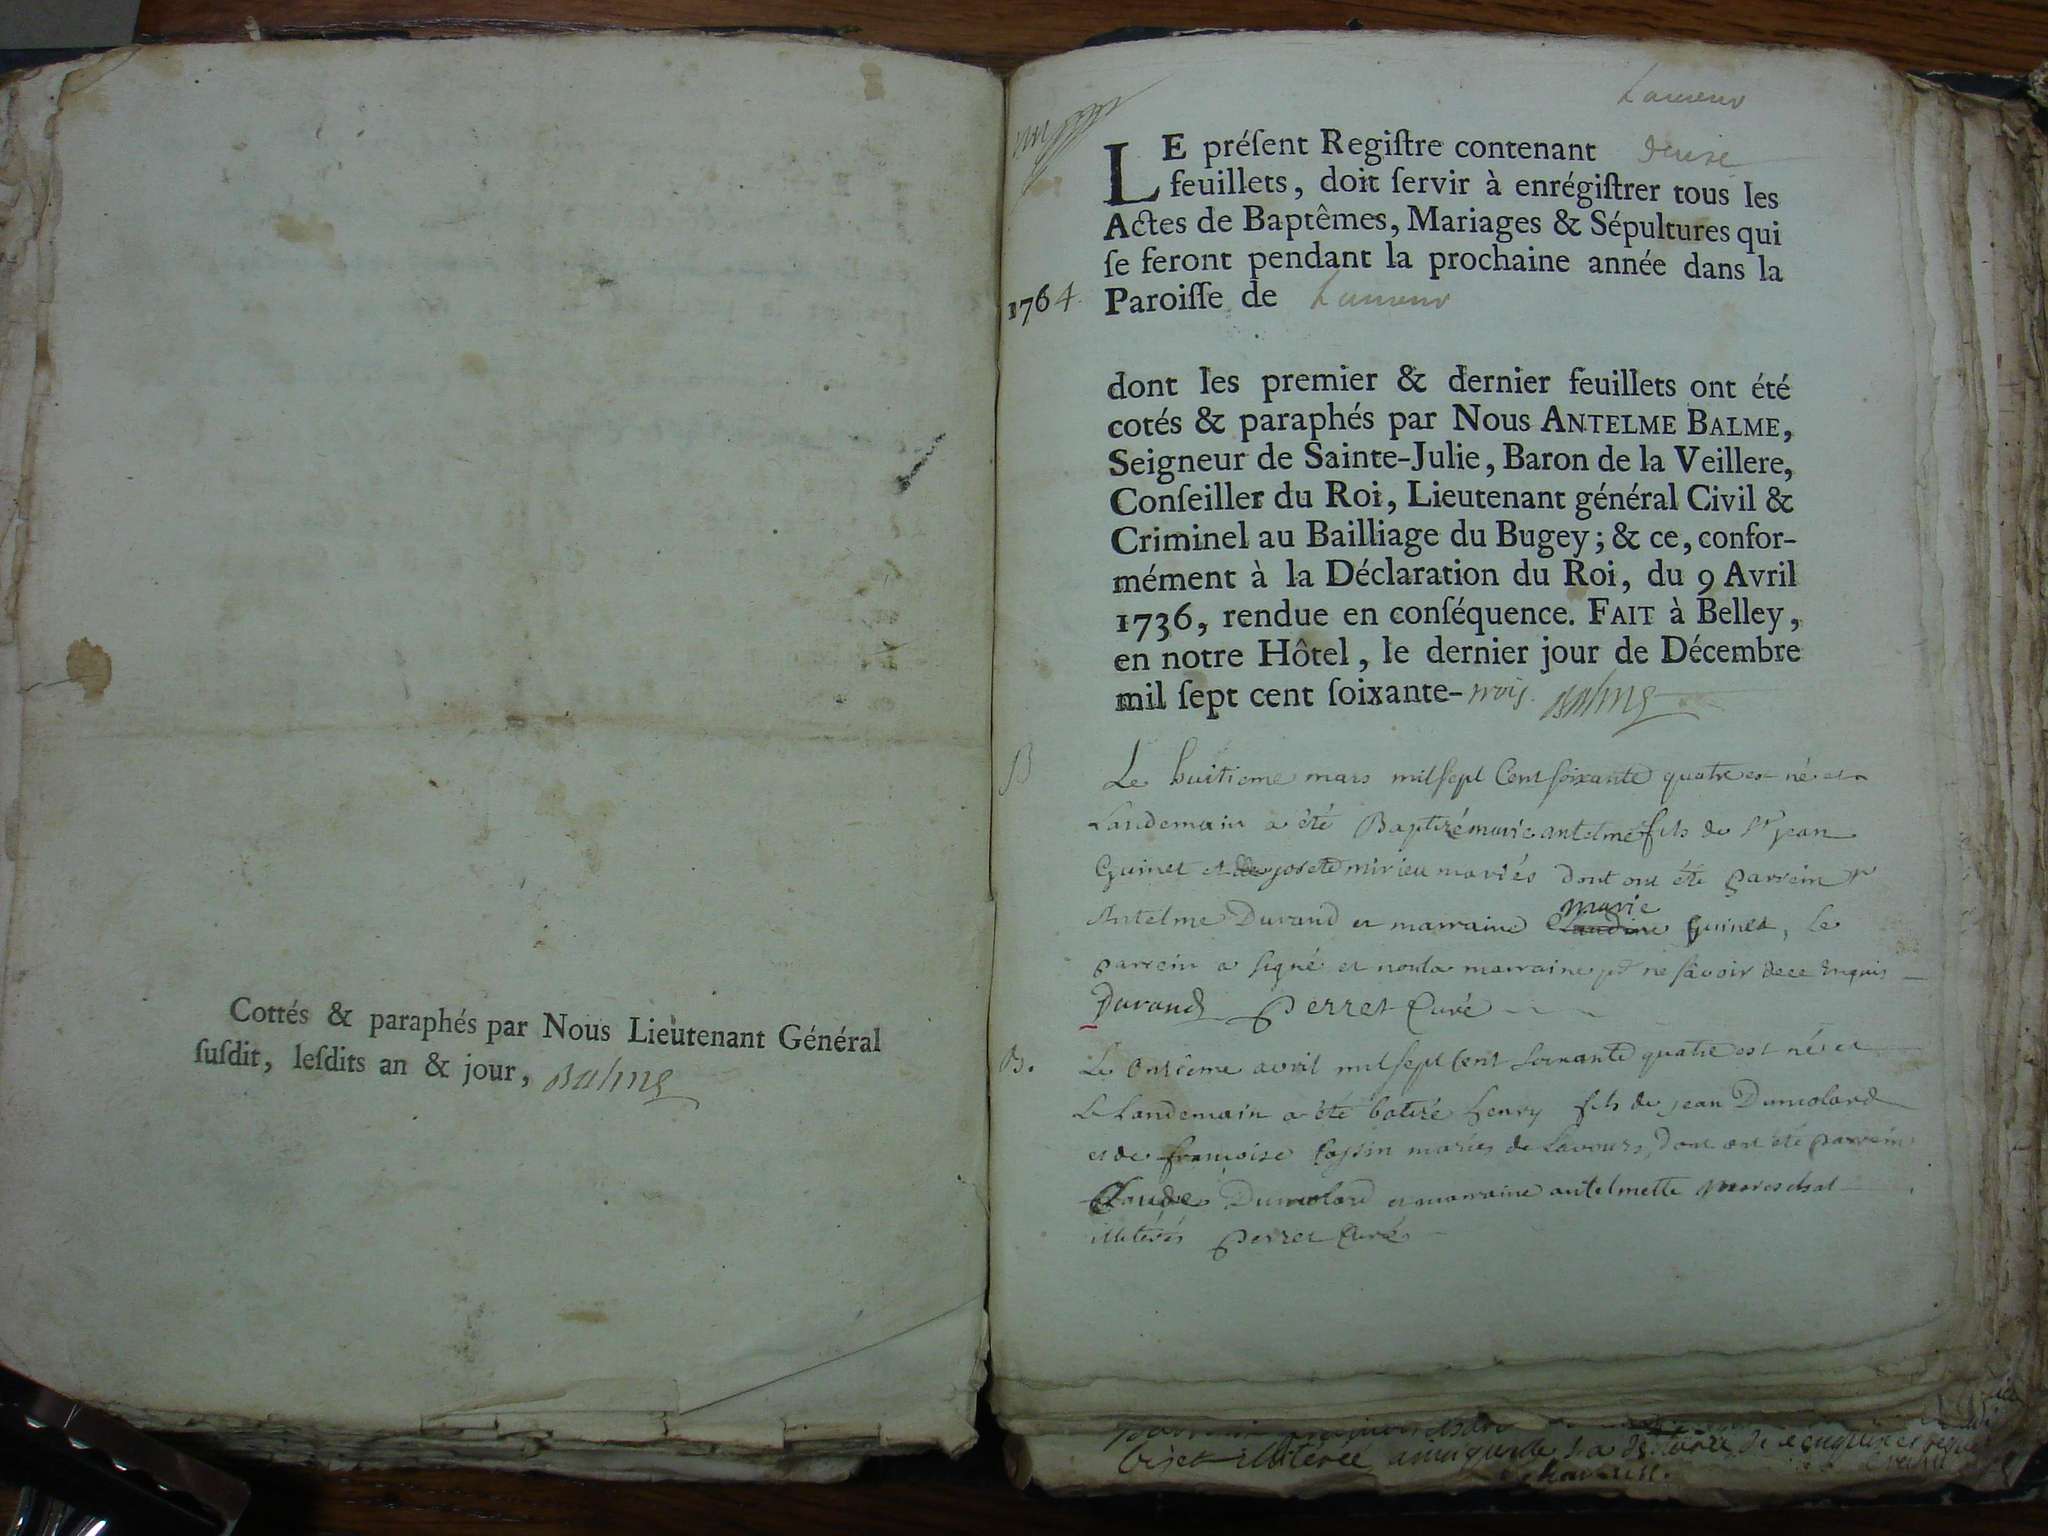 Cottés & paraphés par Nous Lieutenant Général
ſuſdit, leſdits an & jour, Balme
LE préſent Regiſtre contenant
feuillets, doit ſervir à enrégiſtrer tous les
Actes de Baptêmes, Mariages & Sépultures qui
ſe feront pendant la prochaine année dans la
1764. Paroiſſe de
dont les premier & dernier feuillets ont été
cotés & paraphés par Nous ANTELME BALME,
Seigneur de Sainte-Julie, Baron de la Veillere,
Conſeiller du Roi, Lieutenant général Civil &
Criminel au Bailliage du Bugey; & ce, confor-
mément à la Déclaration du Roi, du 9 Avril
1736, rendue en conſéquence. FAIT à Belley,
en notre Hôtel, le dernier jour de Décembre
mil ſept cent ſoixante-trois. Balme
B Le huitieme mars mil sept Cent soixante quatre est né et
Landemain a été Baptizé marie antelme fils de Sr jean
Guinet et mirieu mariés dont ont été parrein Sr
Antelme Durand et marraine Claudine marie Guinet, Le
parrein a signé et non la marraine pr ne savoir de ce enquis
Durand Perret Curé
B. Le onsieme avril mil sept Cent soixante quatre est né et
Le Landemain a été batizé henry fils de jean Dumolard
et de françoise Cossin mariés de Lavours, dont ont été parrein
Claude Dumolard et marraine antelmette mareschal
illitérés perret Curé